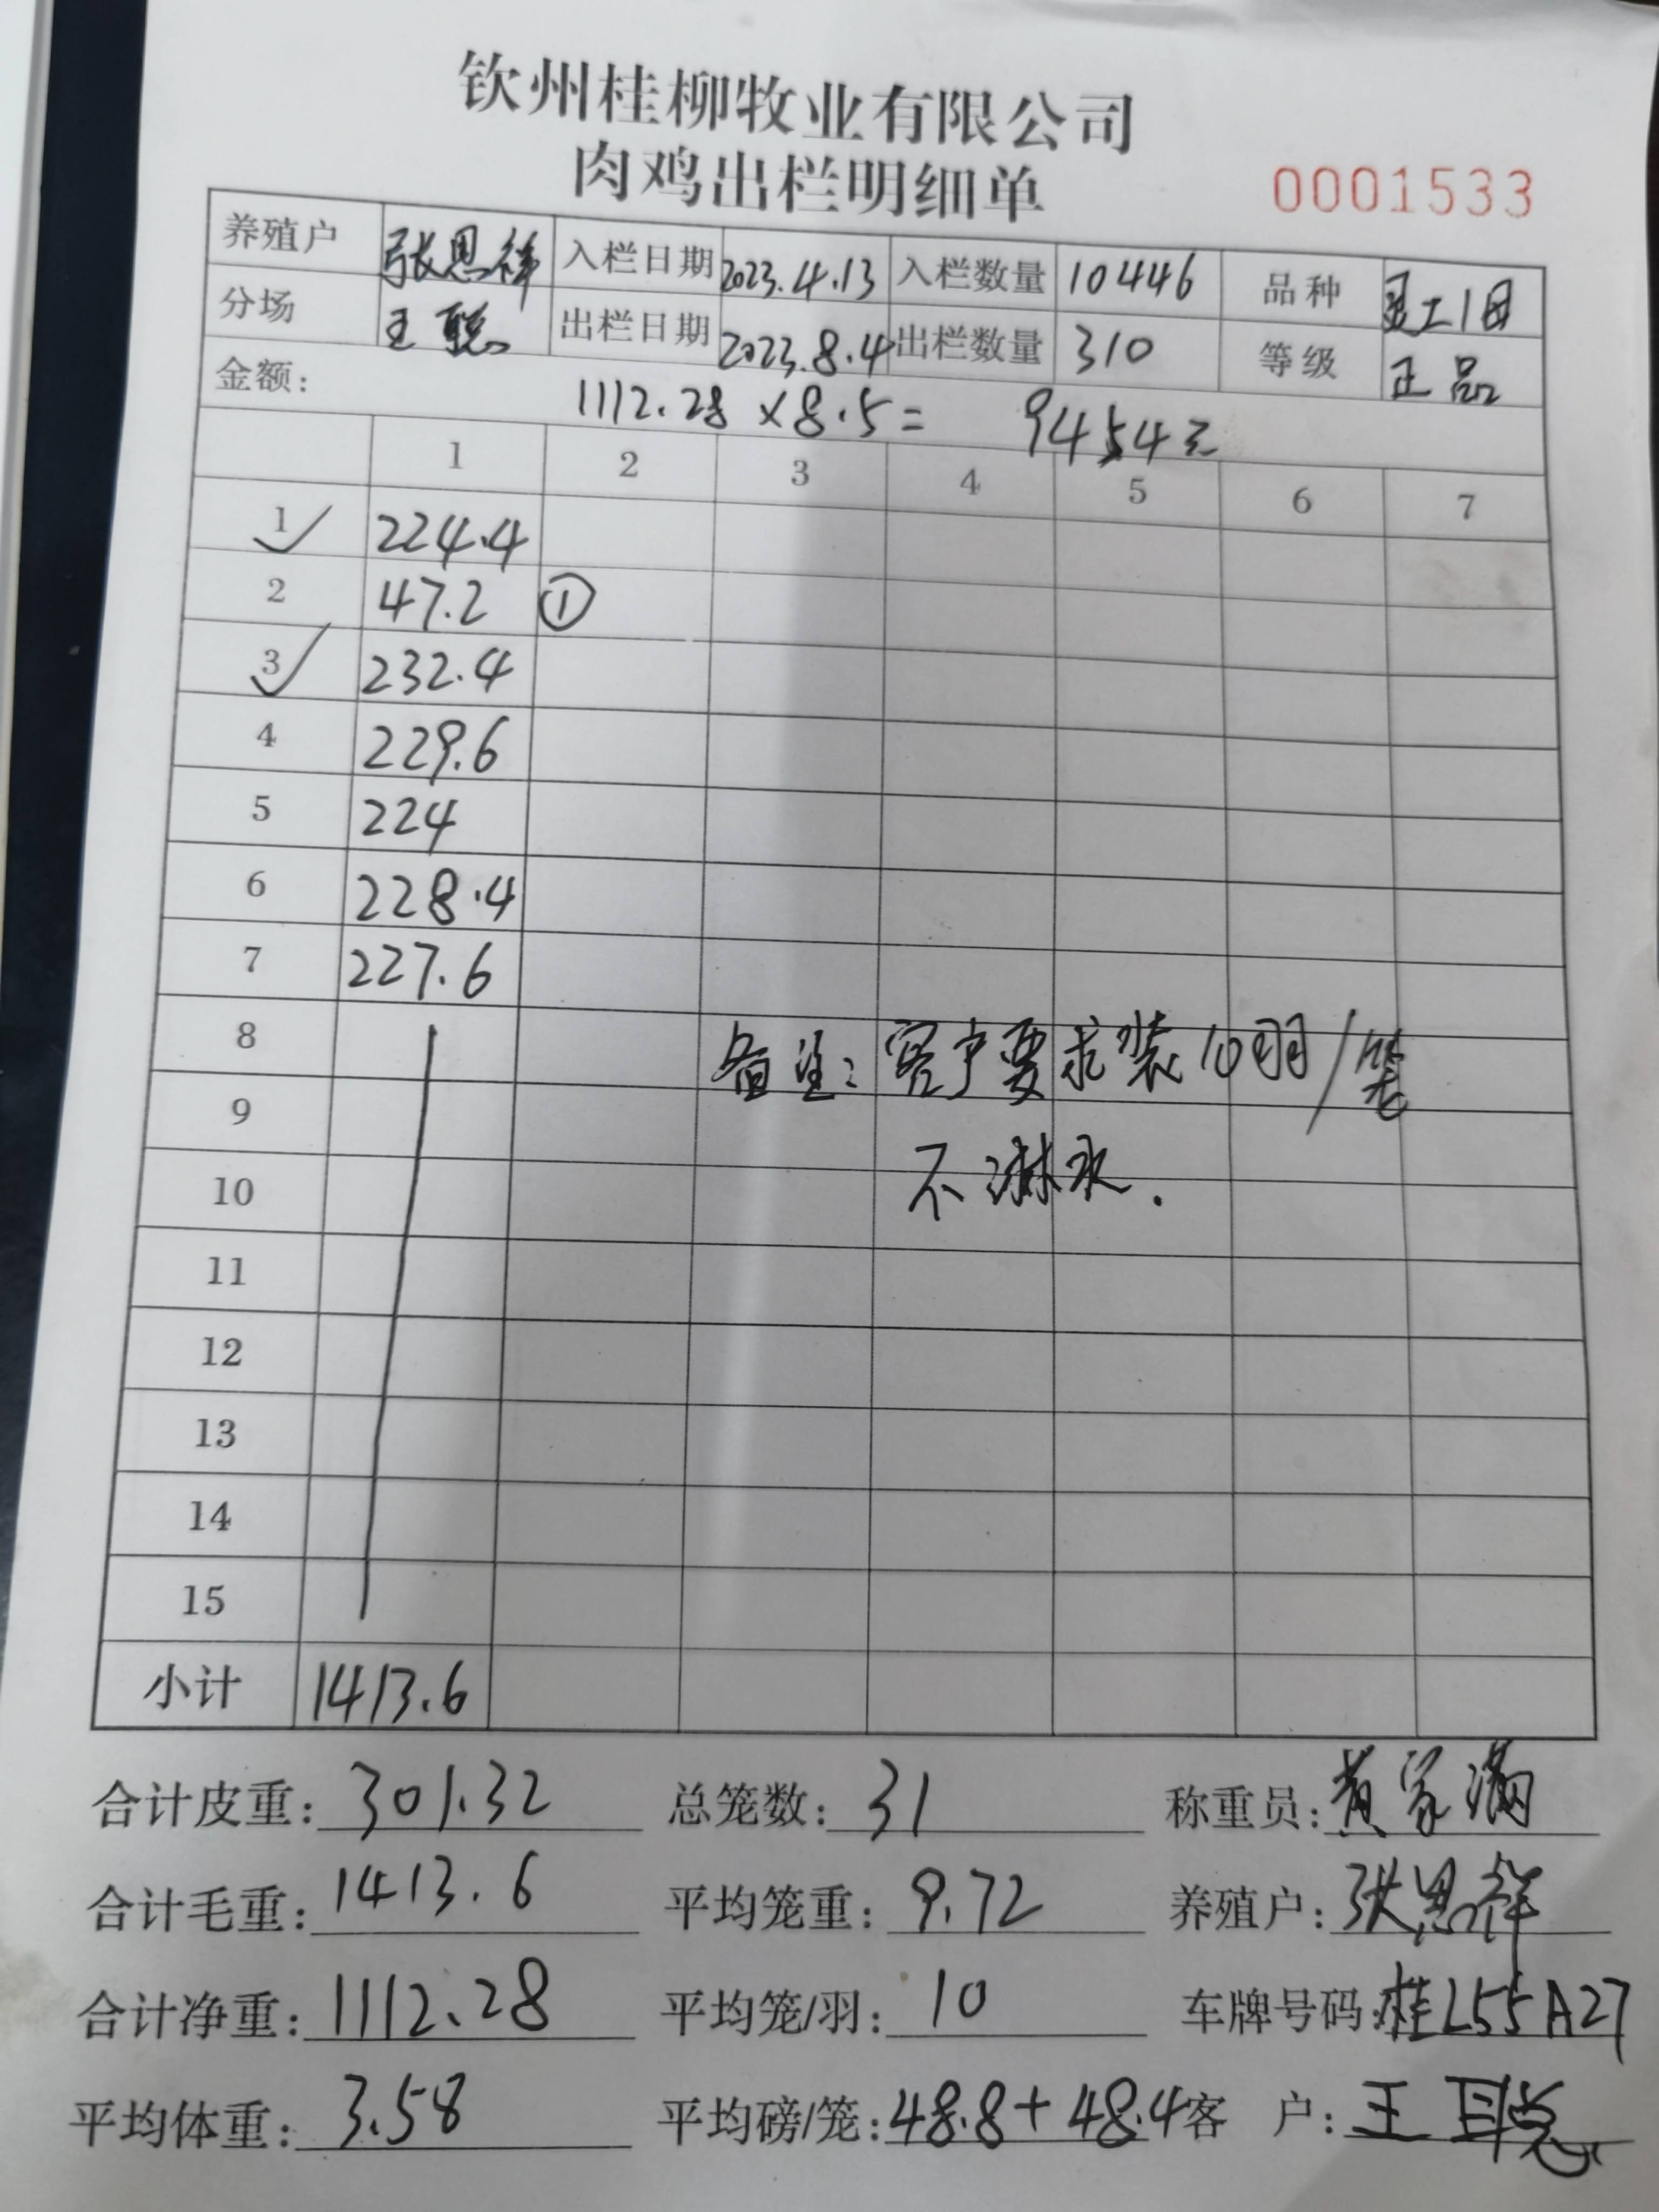 钦州桂柳牧业有限公司
肉鸡出栏明细单 0001533
养殖户 张恩祥 入栏日期 2023.4.13 入栏数量 10446 品种
分场 王聪 出栏日期 2023.8.4 出栏数量 310 等级 正品
金额: 1112.28×8.5= 9454元
1 2 3 4 5 6 7
1 ✓ 224.4
2 47.2 ①
3 ✓ 232.4
4 229.6
5 224
6 228.4
7 227.6
8 备注: 客户要求装10羽/笼
9
10 不淋水.
11
12
13
14
15
小计 1413.6
合计皮重: 301.32 总笼数: 31 称重员: 黄家满
合计毛重: 1413.6 平均笼重: 9.72 养殖户: 张恩祥
合计净重: 1112.28 平均笼/羽: 10 车牌号码: 桂L55A27
平均体重: 3.58 平均磅/笼: 48.8+48.4 客户: 王聪